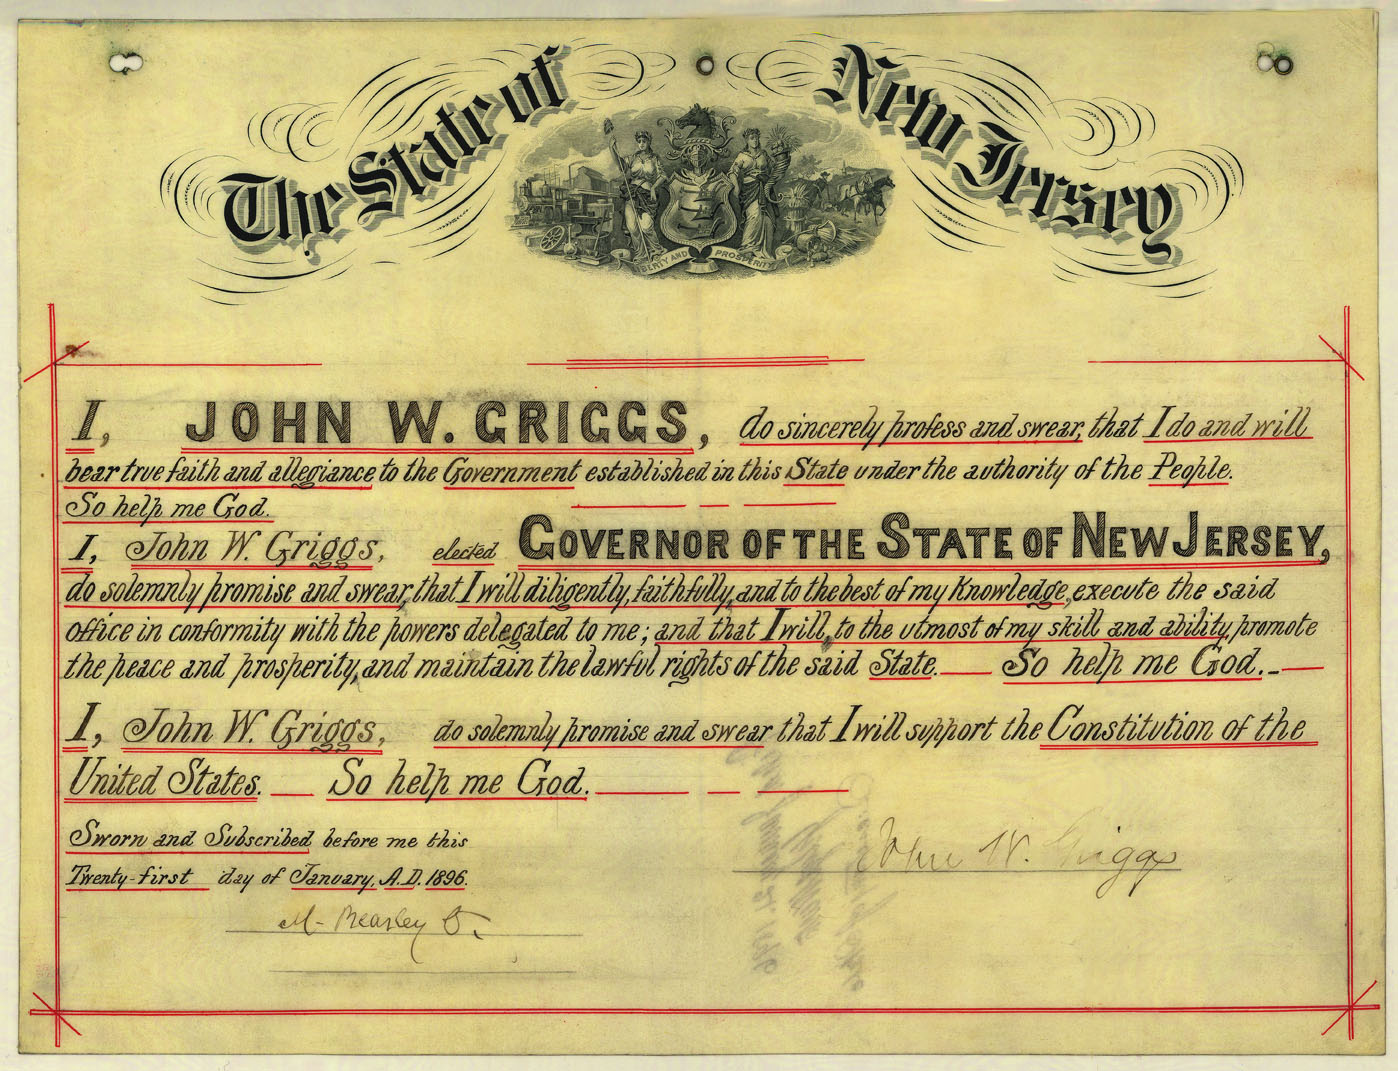 The State of New Jersey
LIBERTY AND PROSPERITY
I, JOHN W. GRIGGS, do sincerely profess and swear, that I do and will
bear true faith and allegiance to the Government established in this State under the authority of the People.
So help me God.
I, John W. Griggs, elected GOVERNOR OF THE STATE OF NEW JERSEY,
do solemnly promise and swear, that I will diligently, faithfully, and to the best of my Knowledge, execute the said
office in conformity with the powers delegated to me; and that I will, to the utmost of my skill and ability, promote
the peace and prosperity, and maintain the lawful rights of the said State. So help me God.
I, John W. Griggs, do solemnly promise and swear that I will support the Constitution of the
United States. So help me God.
Sworn and Subscribed before me this
Twenty-first day of January, A.D. 1896.
John W. Griggs
M. Beasley